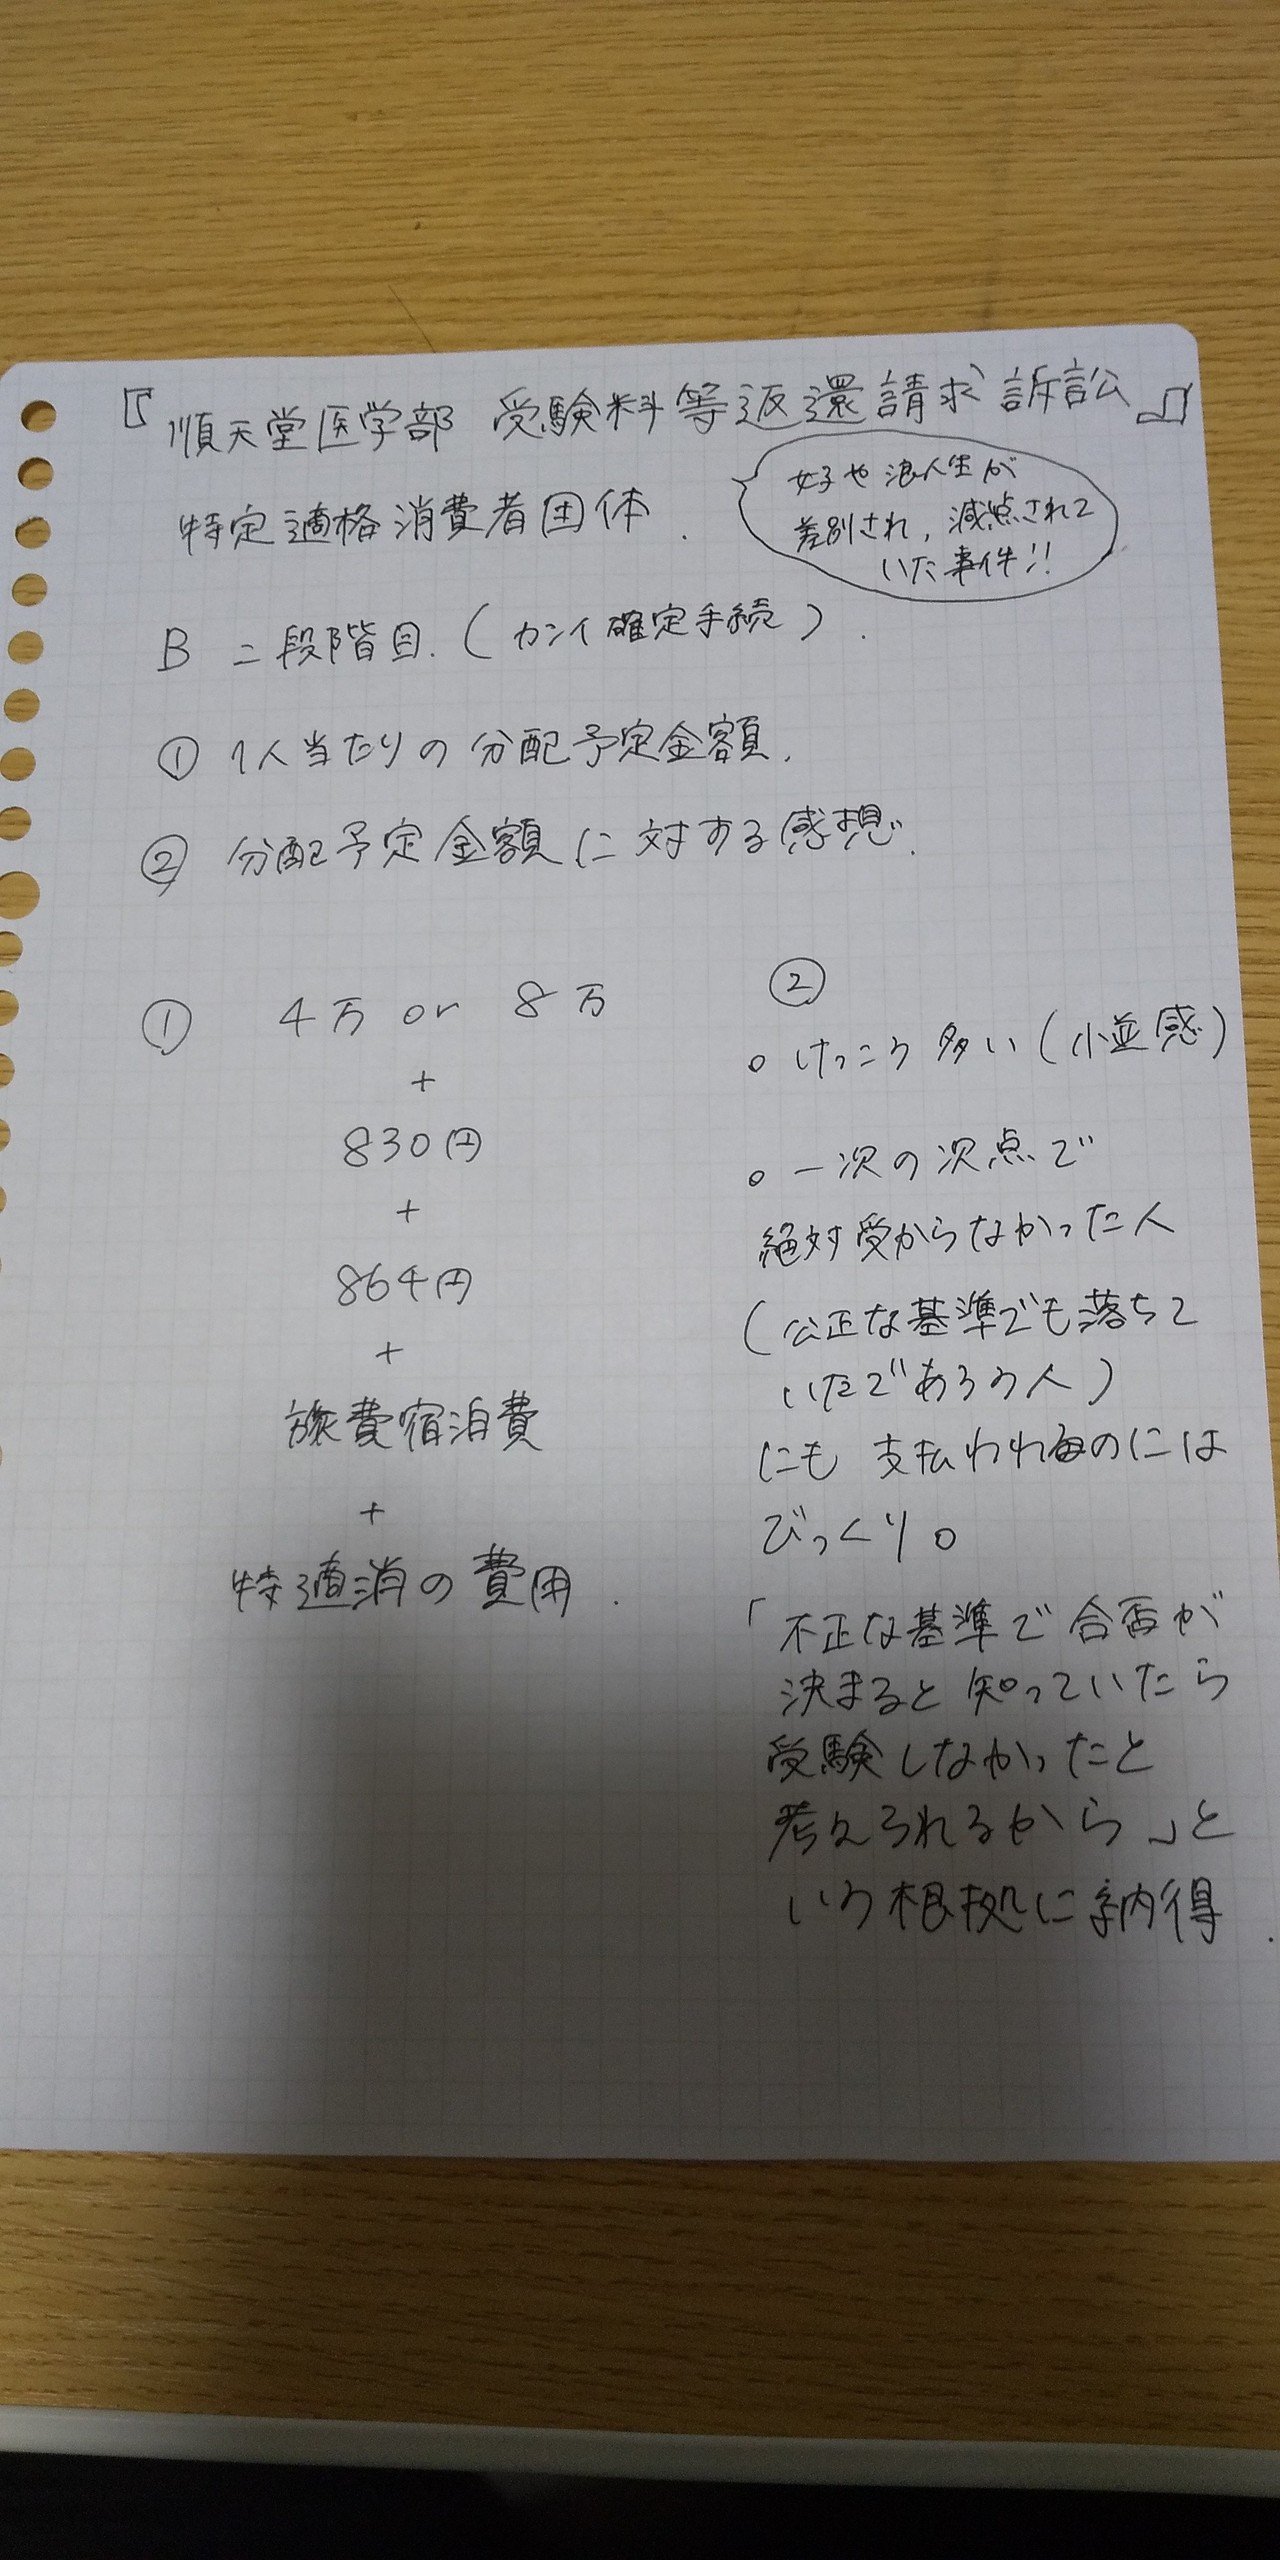 『順天堂医学部 受験料等返還請求訴訟』
女子や浪人生が
差別され、減点されて
いた事件!!
特定適格消費者団体.
B 二段階目.(カンイ確定手続).
① 1人当たりの分配予定金額.
② 分配予定金額に対する感想.
① 4万 or 8万
+
830円
+
864円
+
旅費宿泊費
+
特適消の費用.
②
○けっこう多い(小並感)
○一次の次点で
絶対受からなかった人
(公正な基準でも落ちて
いたであろう人)
にも 支払われるのには
びっくり。
「不正な基準で合否が
決まると知っていたら
受験しなかったと
考えられるから」と
いう根拠に納得.